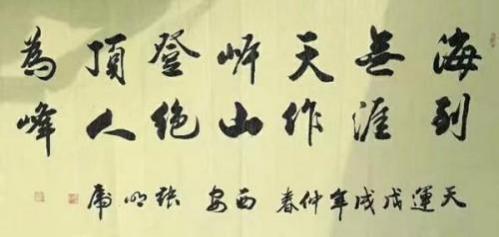 海到
無涯
天作
岸山
登绝
頂人
為峰
天運戊戌年仲春西安張明虎